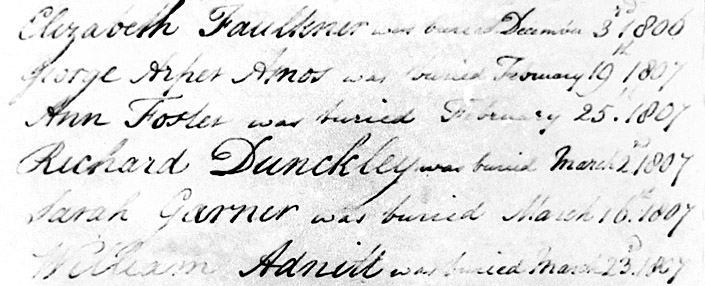 Elizabeth Faulkner was buried December 3rd 1806
George Arper Amos was buried February 19th 1807
Ann Foster was buried February 25th 1807
Richard Dunckley was buried March 2nd 1807
Sarah Garner was buried March 16th 1807
William Adnitt was buried March 23rd 1807